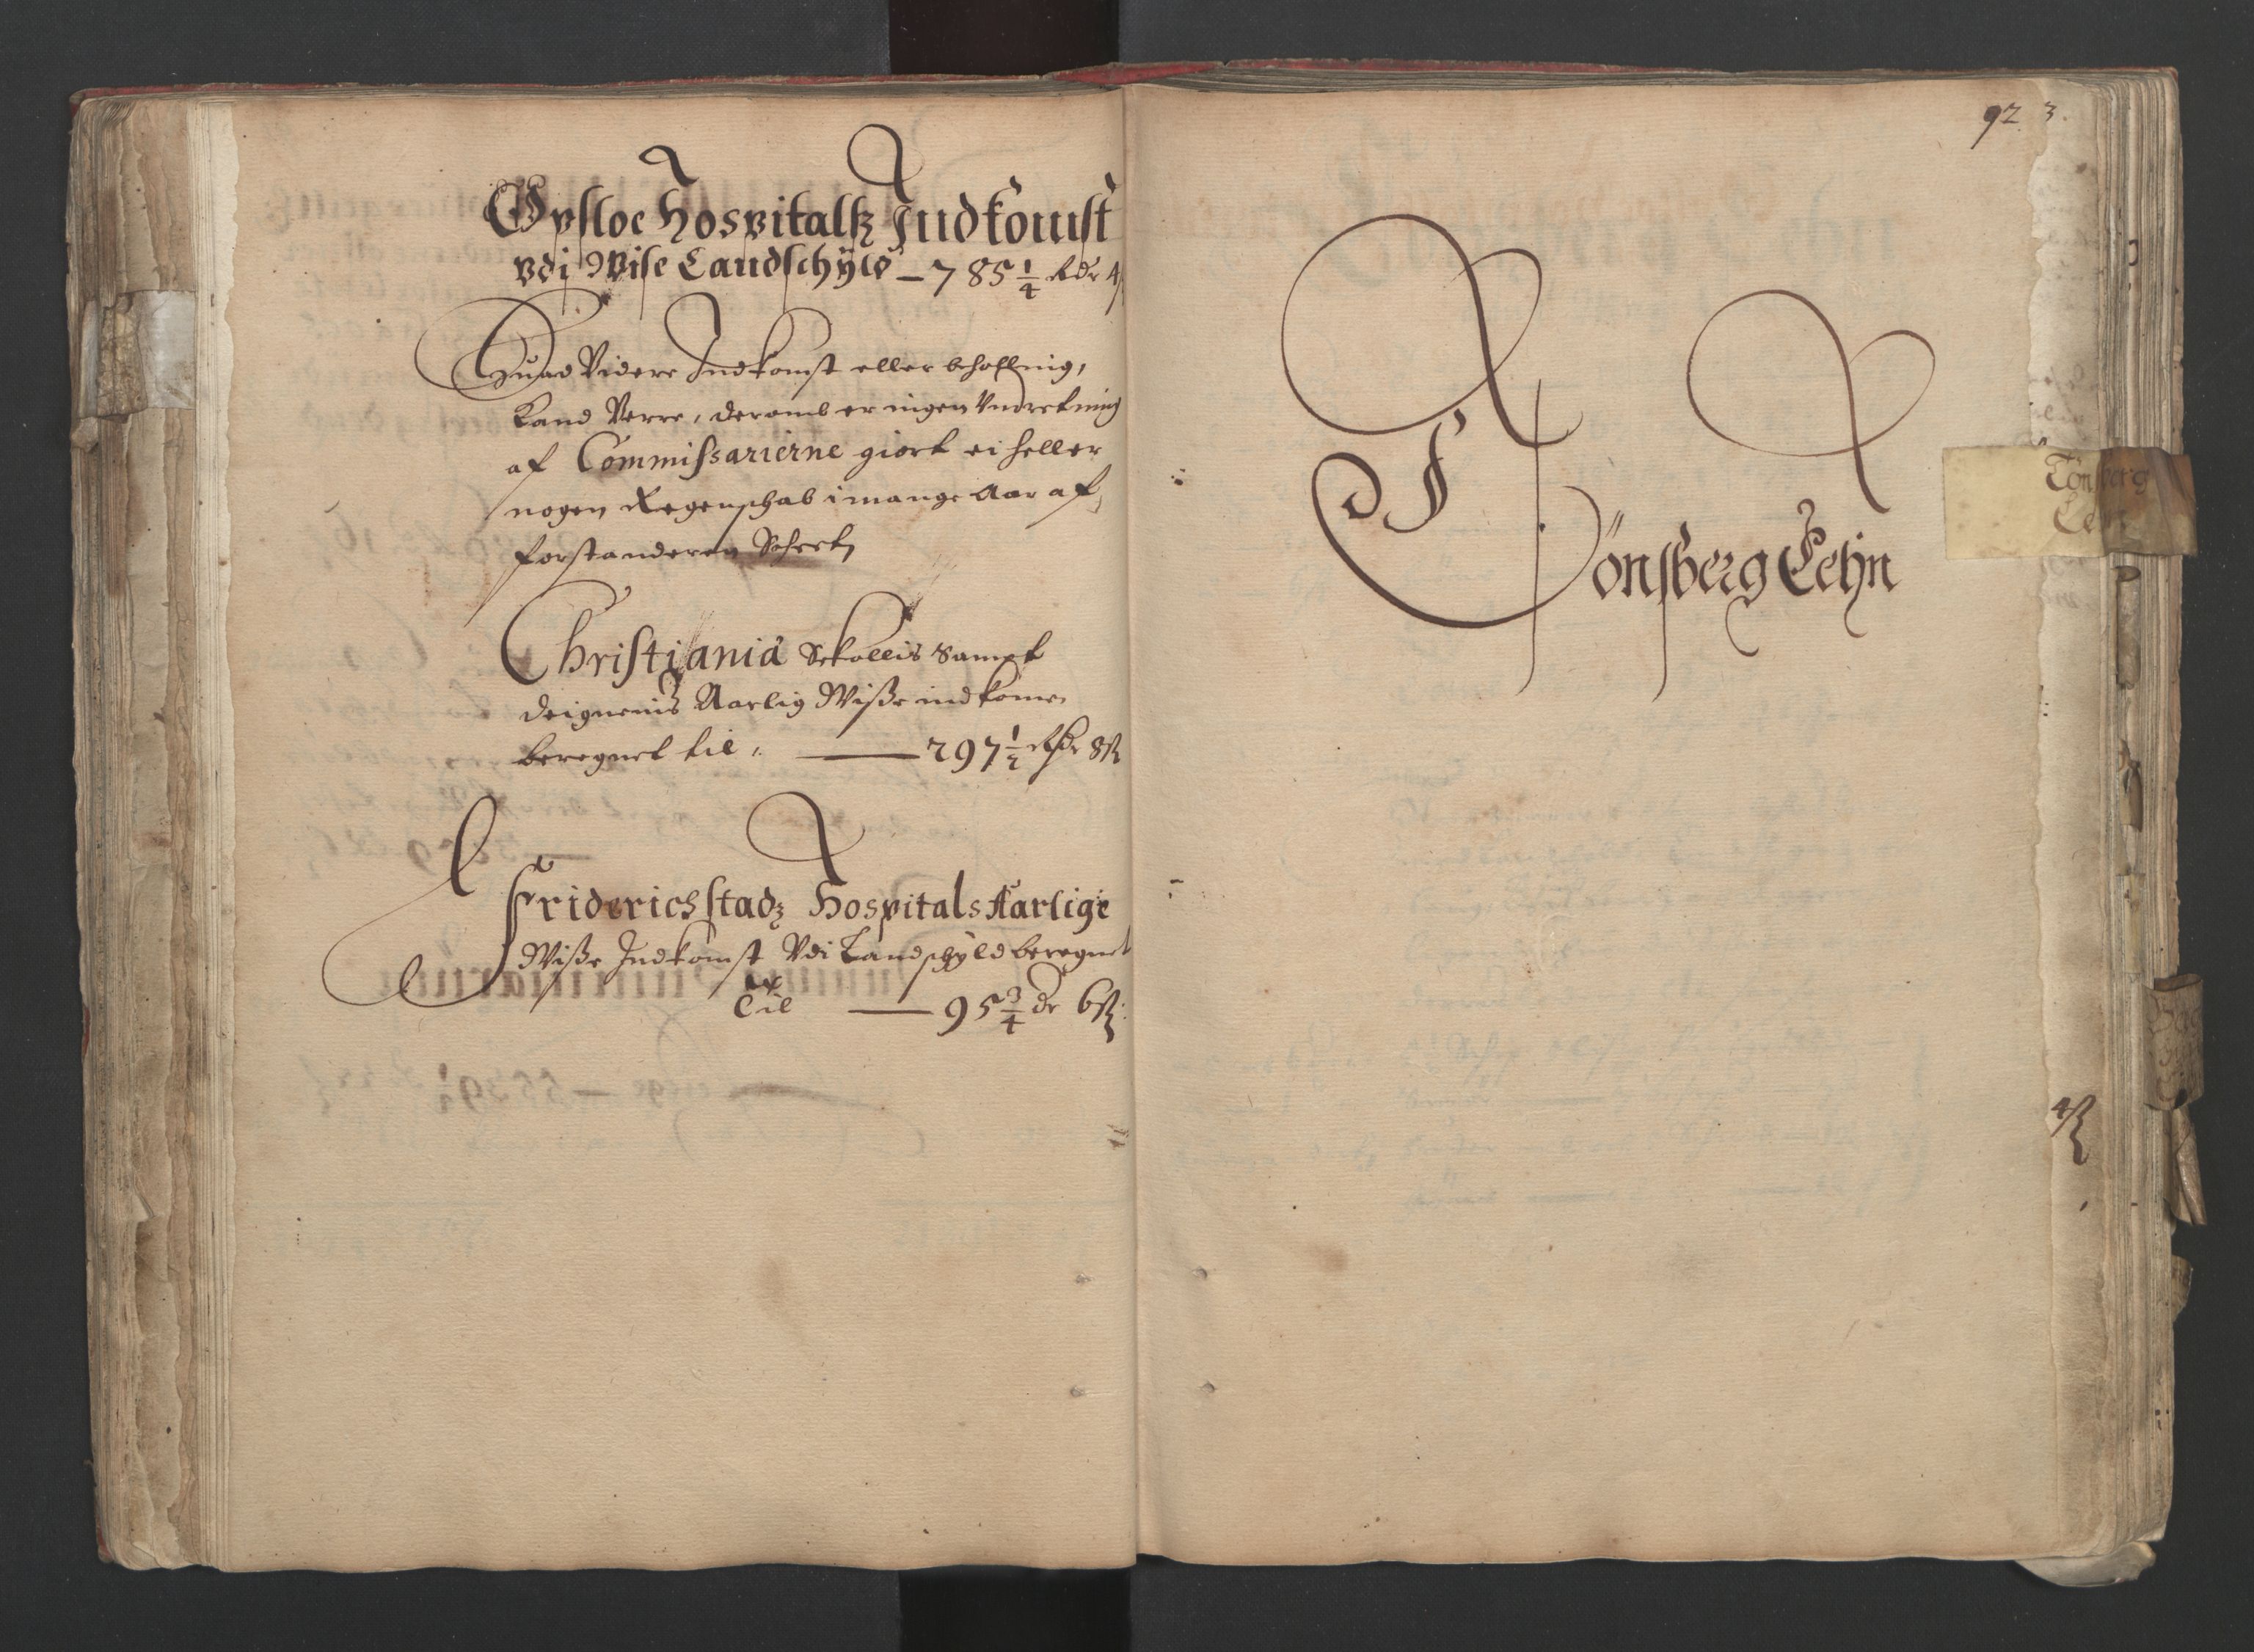 Opsloe Hospitalß Indkomst
vdi Wise Landschÿld — 785 1/4 Rdr 4 ß
Huad Videre Indkomst eller behollnig,
Kand Verre, deromb er ingen Vndretning
af Commissarierne giort ei heller
nogen Regenschab i mange Aar af
forstanderen
Christiania Sampt
deignenis Aarlig Wiße indkome
beregnet til — 297 1/2 Rdr 8 ß
Friderichstadz Hospitals Aarlige
Wiße Indkomst Vdi Landschÿld beregnet
Til — 95 3/4 dr 6 ß
92 3.
Tönsberg Lehn
Tönsberg
Lehn
4 ß